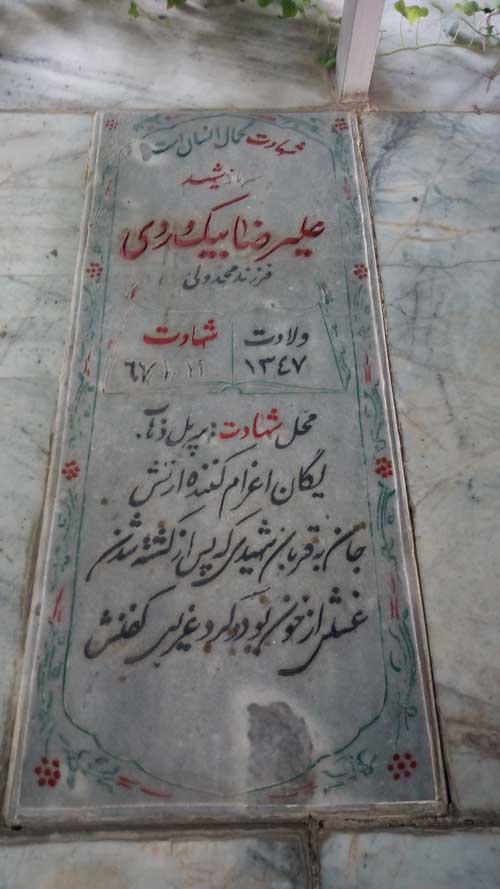 شهادت کمال انسان است
سرباز شهید
علیرضا بیک وردی
فرزند محمدولی
ولادت شهادت
۱۳٤۷
محل شهادت: سرپل ذهاب
یگان اعزام کننده ارتش
جان به قربان شهیدی که پس از کشته شدن
غسلش از خون بود و گرد غریبی کفنش